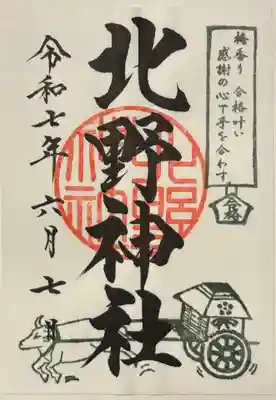 梅香り 合格叶い
感謝の心で手を合わす
合格
北野神社
令和七年 六月 七日